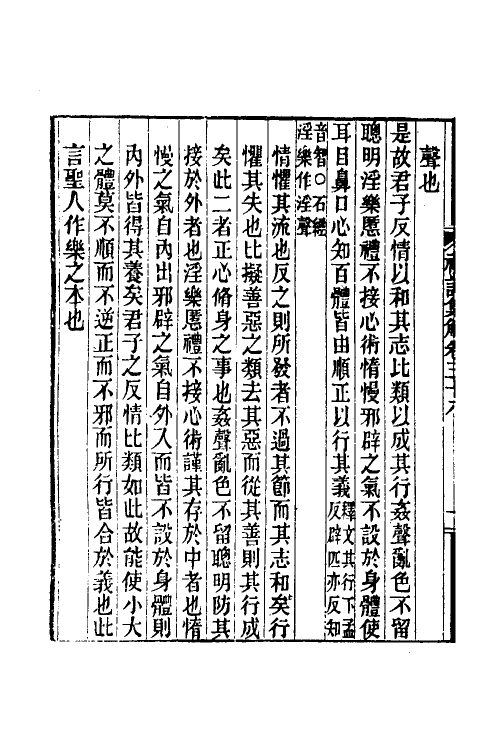 禮記集解卷三十八
聲也
是故君子反情以和其志比類以成其行姦聲亂色不留
聰明淫樂慝禮不接心術惰慢邪辟之氣不設於身體使
耳目鼻口心知百體皆由順正以行其義
釋文其行下孟
反辟匹亦反知
音智○石經
淫樂作淫聲
情懼其流也反之則所發者不過其節而其志和矣行
懼其失也比擬善惡之類去其惡而從其善則其行成
矣此二者正心脩身之事也姦聲亂色不留聰明防其
接於外者也淫樂慝禮不接心術謹其存於中者也惰
慢之氣自內出邪辟之氣自外入而皆不設於身體則
內外皆得其養矣君子之反情比類如此故能使小大
之體莫不順而不逆正而不邪而所行皆合於義也此
言聖人作樂之本也